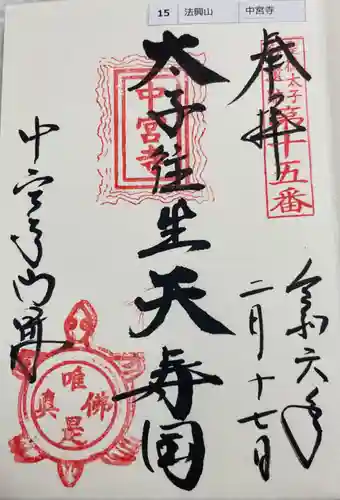 15 法興山 中宮寺
奉拝
聖徳太子
第十五番
令六年
二月十七日
中宮寺
太子往生天寿国
中宮寺門跡
唯佛
是真